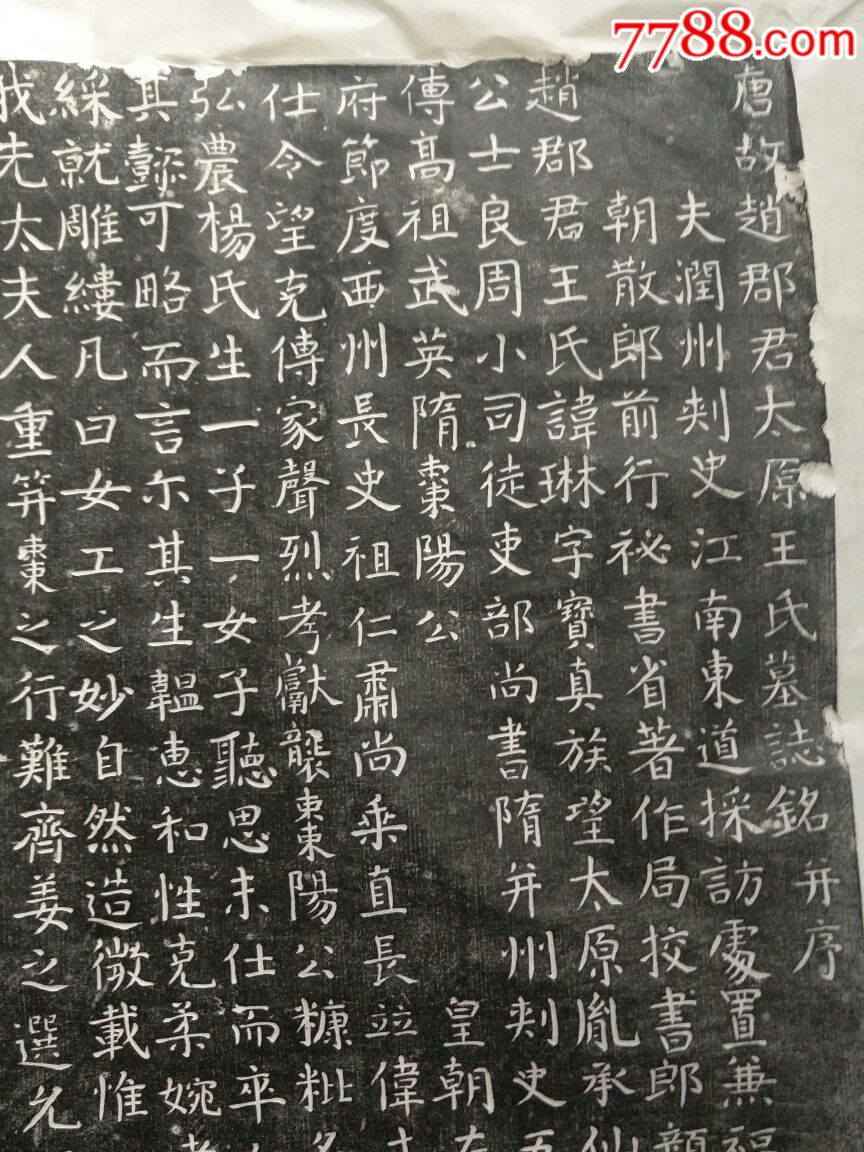 7788.com
唐故趙郡君太原王氏墓誌銘并序
夫潤州刾史江南東道採訪處置兼福
朝散郎前行祕書省著作局挍書郎顔
趙郡君王氏諱琳字寶真族望太原胤承仙
公士良周小司徒吏部尚書隋并州刾史五
傳高祖武英隋棗陽公 皇朝左
府節度西州長史祖仁肅尚乘直長竝偉才
仕令望克傳家聲烈考獻襲棗陽公糠粃名
弘農楊氏生一子一女子聽思未仕而卒
其懿可略而言尒其生韞惠和性克柔婉
綵就雕縷凡曰女工之妙自然造微載惟
我先太夫人重笄棗之行難齊姜之選允